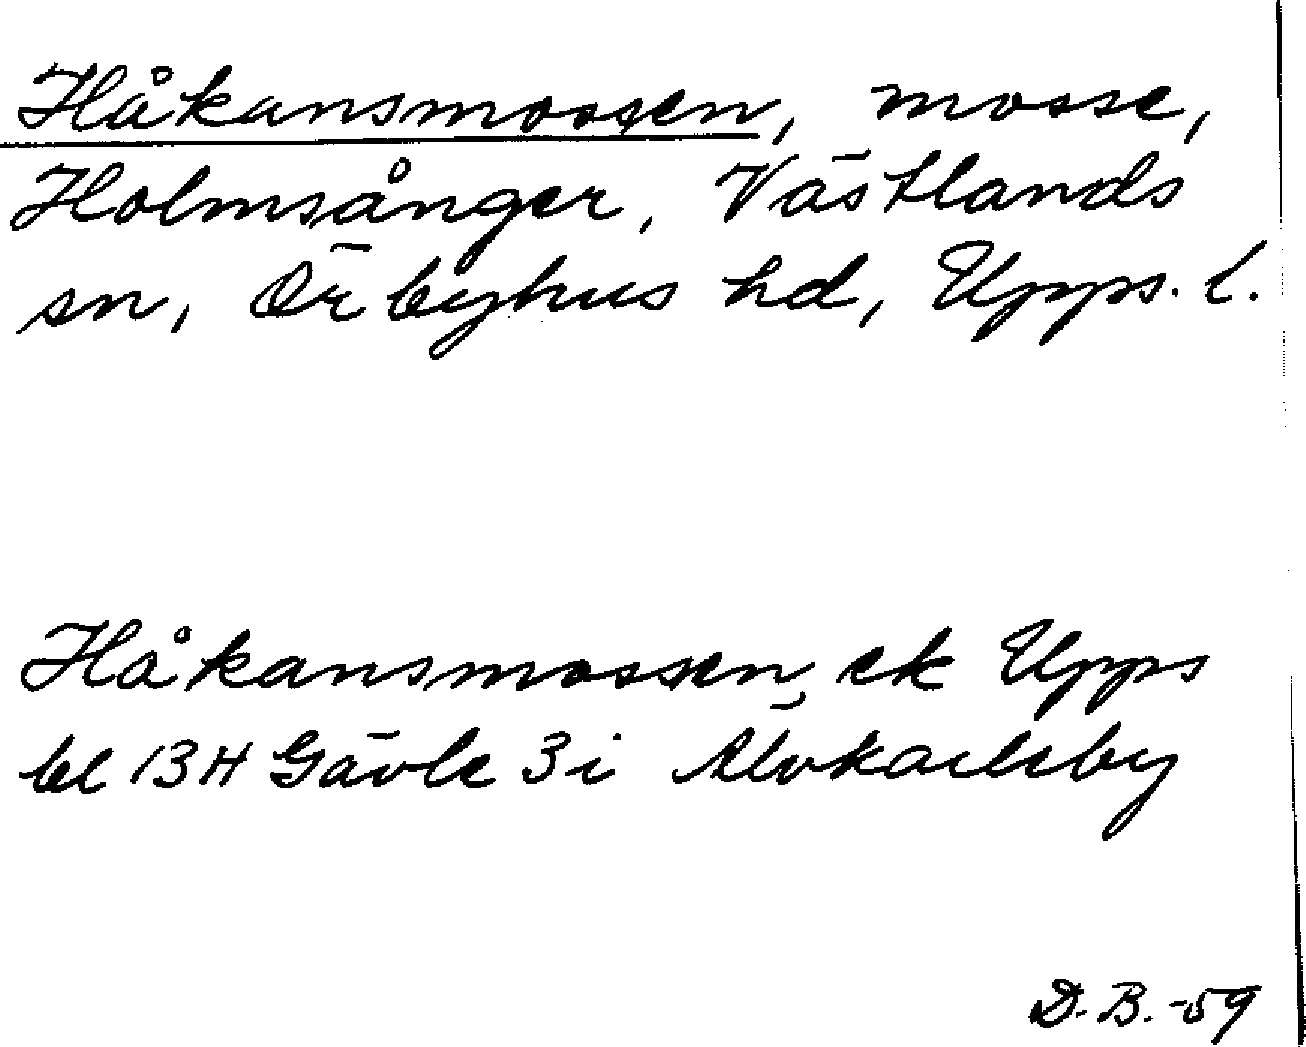 Håkansmossen, mosse,
Holmsånger, Västlands
sn, Örbyhus hd, Upps. l.
Håkansmossen, ek Upps
bl 13H Gävle 3i Älvkarleby
D.B. -59